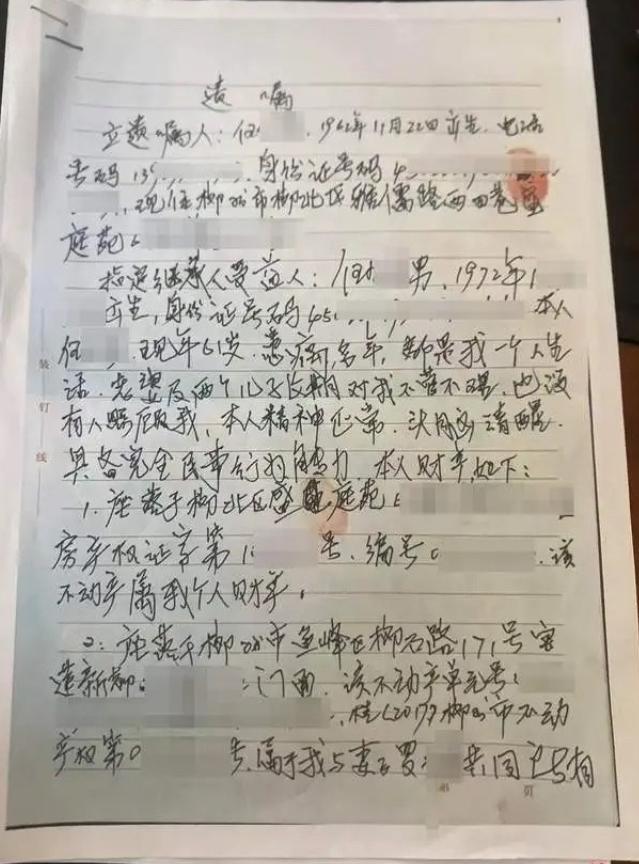 遗嘱
立遗嘱人：任 ，1962年11月22日出生，电话
号码139 ，身份证号码4
，现住柳州市柳北区雅儒路西四巷盛
庭苑
指定继承人受益人：任 男，1972年1
出生，身份证号码45 本人
任 ，现年61岁，患病多年，都是我一个人生
活，老婆及两个儿子长期对我不管不理，也没
有人照顾我，本人精神正常，头脑清醒，
具备完全民事行为能力，本人财产如下：
1、座落于柳北区盛 庭苑
房产权证字第1 号，编号0 ，该
不动产属我个人财产。
2、座落于柳州市鱼峰区柳石路171号宝
莲新都 门面，该不动产单元号：
，桂(2017)柳州市不动
产权第0 号，属于我与妻子罗 共同
装
钉
线
第
页